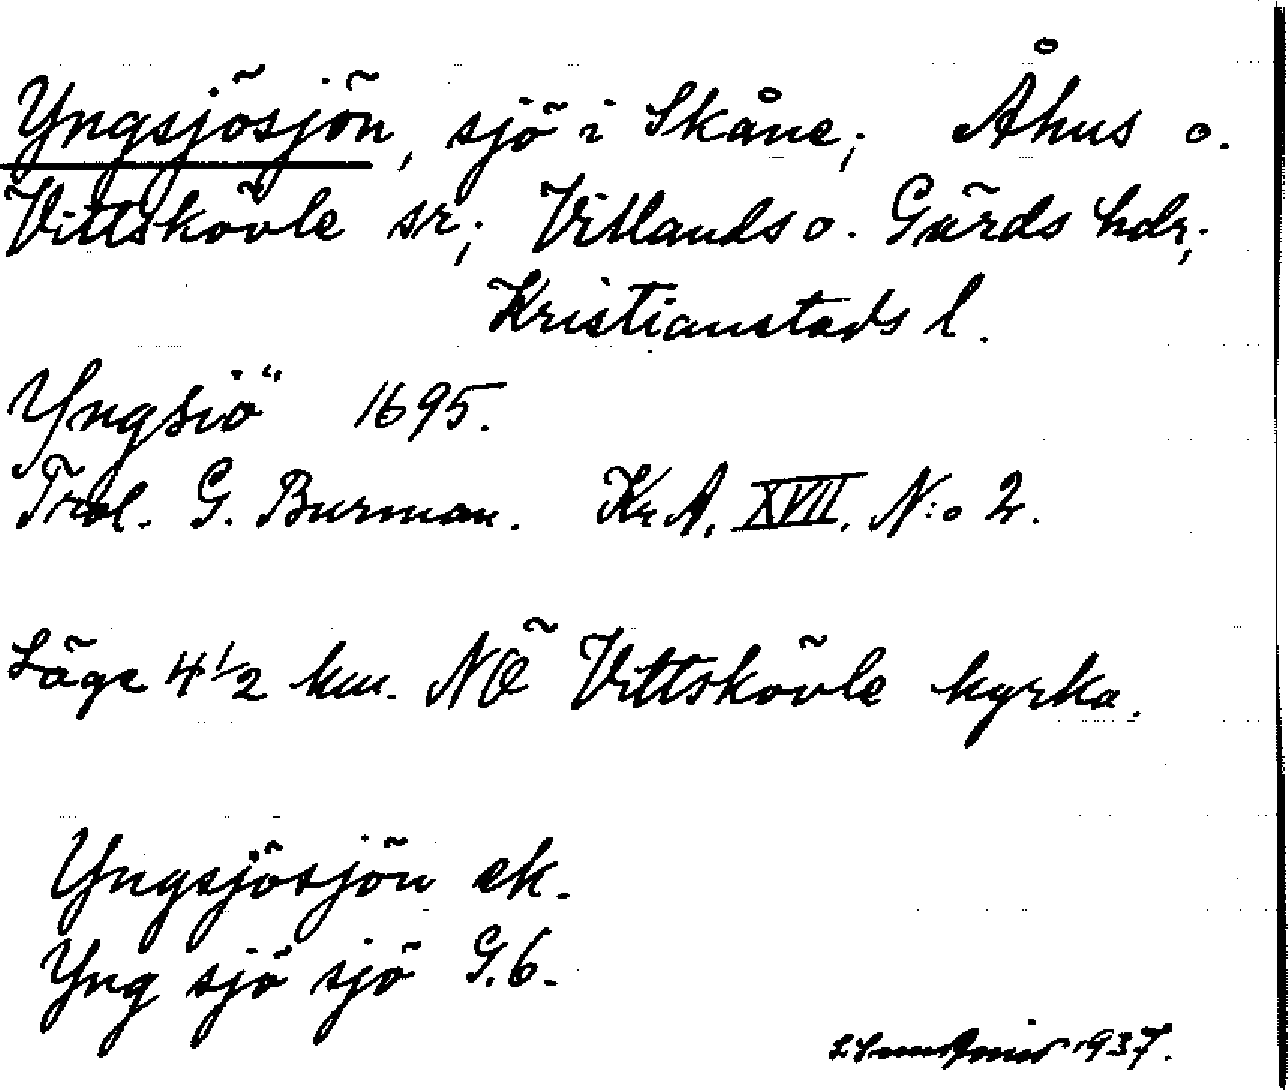 Yngsjösjön, sjö i Skåne; Åhus o.
Vittskövle sr; Villands o. Gärds hdr;
Kristianstads l.
Yngsiö 1695.
Trol. G. Burman. Kr A. XVII. N:o 2.
Läge 4 1/2 km. NÖ Vittskövle kyrka.
Yngsjösjön ek.
Yng sjö sjö G.6.
1937.